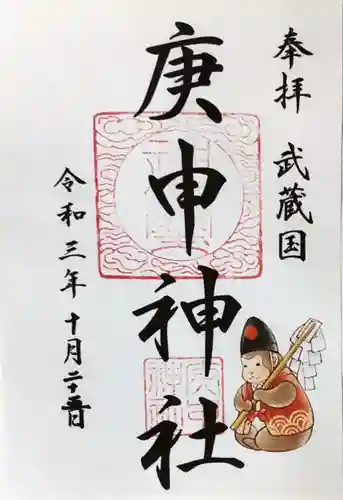 奉拝 武蔵国
庚申神社
令和三年十月二十五日